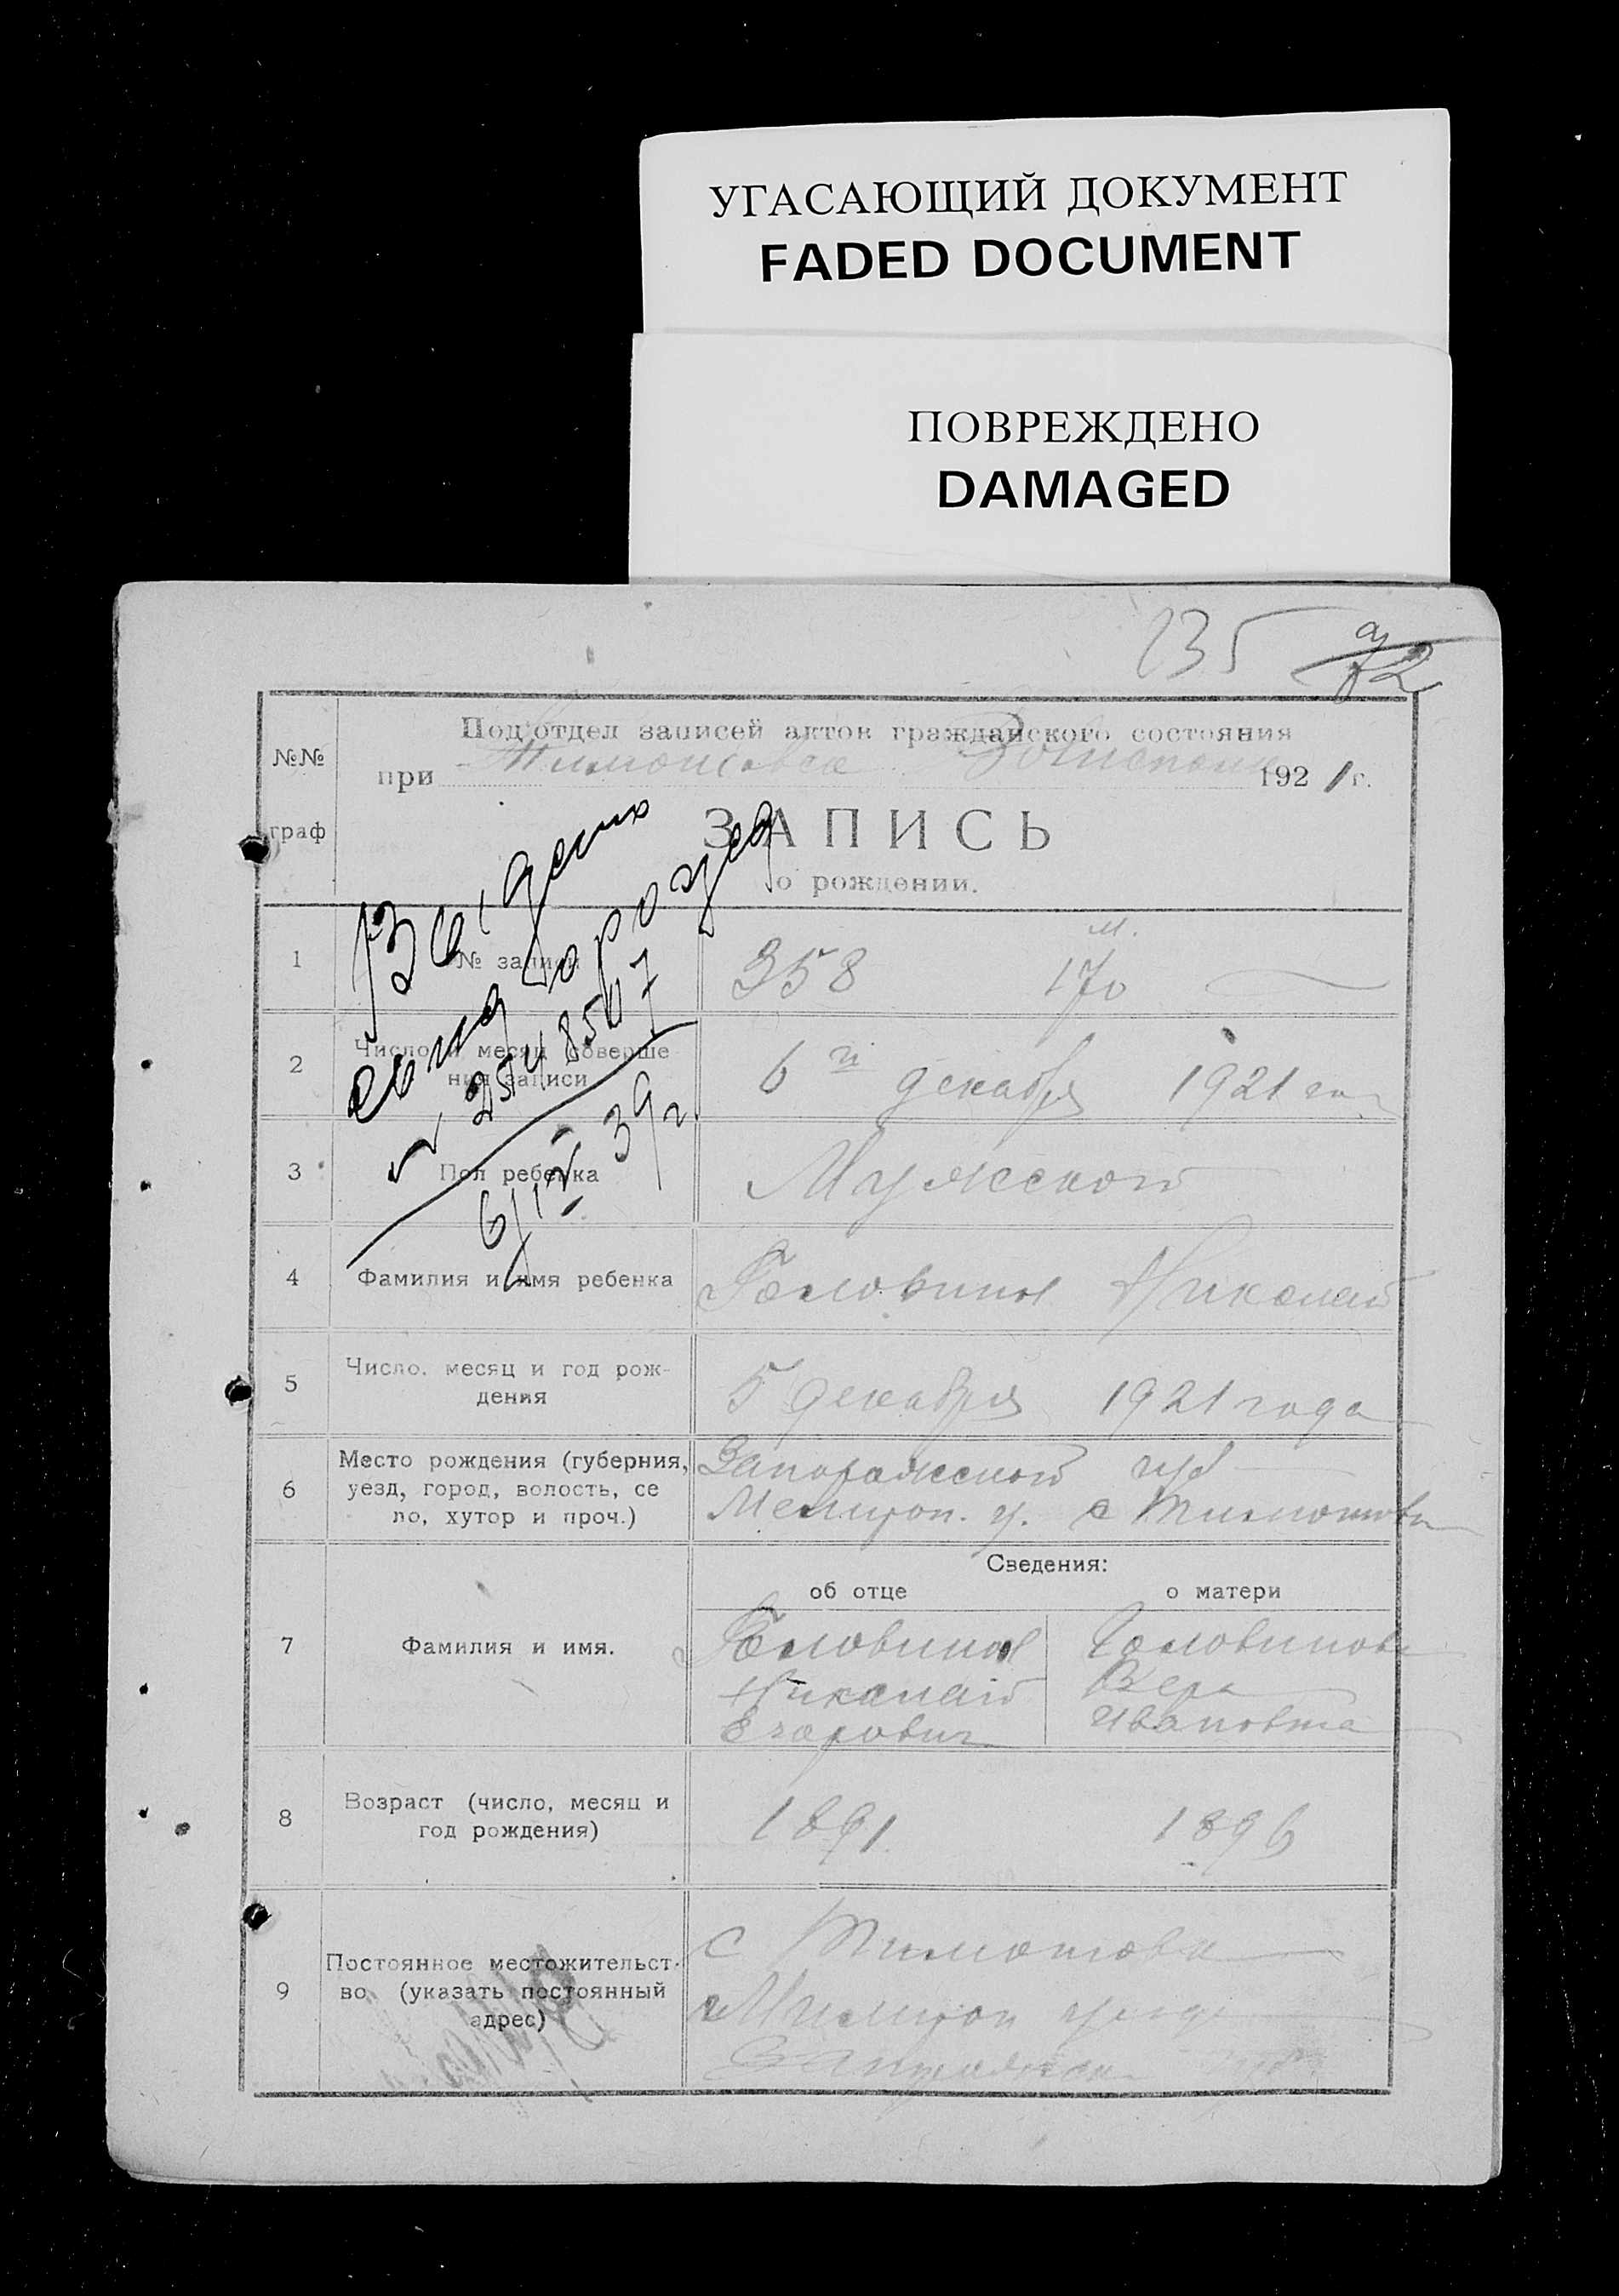 УГАСАЮЩИЙ ДОКУМЕНТ
FADED DOCUMENT
ПОВРЕЖДЕНО
DAMAGED
235
№№
граф
Под'отдел записей актов гражданского состояния
при Тимошовке 1921 г.
ЗАПИСЬ
о рождении.
1 № записи 358 м. 170
2 Число и месяц соверше
ния записи
6й декабря 1921 го
3 Пол ребенка Мужской
4 Фамилия и имя ребенка Головинов Николай
5 Число. месяц и год рож-
дения
5 декабря 1921 года
6 Место рождения (губерния,
уезд, город, волость, се
ло, хутор и проч.)
Запорожской губ
Мелитоп. у. с Тимошовки
Сведения:
об отце о матери
7 Фамилия и имя.
Головинов
Николай
Егорович
Головинова
Вера
Ивановна
8 Возраст (число, месяц и
год рождения)
1891 1896
9 Постоянное местожительст-
во (указать постоянный
адрес)
с Тимошовка
Мелитоп уезда
№ 2548507
39 г.